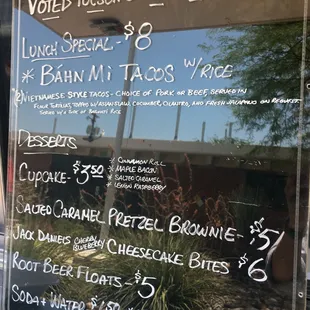 VOTED TUCSON'S
LUNCH SPECIAL - $8
* BÁHN MI TACOS W/RICE
(2) VIETNAMESE STYLE TACOS - CHOICE OF PORK OR BEEF, SERVED IN
FLOUR TORTILLAS, TOPPED W/ASIAN SLAW, CUCUMBER, CILANTRO, AND FRESH JALAPEÑO ON REQUEST
SERVED W/A SIDE OF BASMATI RICE
DESSERTS
CUPCAKE - $3.50
* CINNAMON ROLL
* MAPLE BACON
* SALTED CARAMEL
* LEMON RASPBERRY
SALTED CARAMEL PRETZEL BROWNIE - $5
JACK DANIELS CHERRY BLUEBERRY CHEESECAKE BITES - $6
ROOT BEER FLOATS - $5
SODA + WATER $1.50